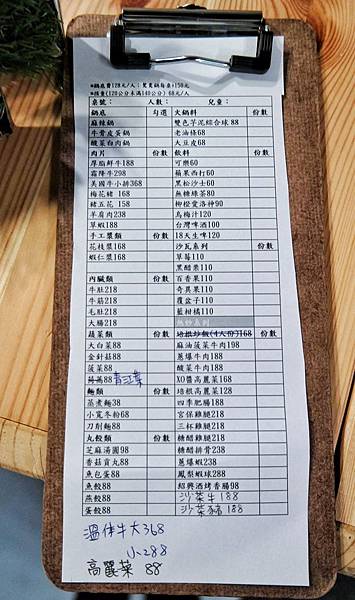 *鍋底費128元/人；鴛鴦鍋每桌+150元
*孩童(120公分未滿140公分) 68元/人
桌號： 人數： 兒童：
鍋底 勾選 火鍋料 份數
麻辣鍋 雙色芋泥綜合球 88
牛骨皮蛋鍋 老油條68
酸菜白肉鍋 大豆皮68
肉片 份數 飲料 份數
厚脂鮮牛188 可樂60
霜降牛298 蘋果西打60
美國牛小排368 黑松沙士60
梅花豬 168 無糖綠茶80
豬五花 158 柳橙愛洛神90
羊肩肉238 烏梅汁120
草蝦188 台灣啤酒100
手工漿類 份數 18天生啤120
花枝漿168 沙瓦系列 份數
蝦仁漿168 草莓110
黑醋栗110
內臟類 份數 百香果110
牛肚218 奇異果110
牛筋218 覆盆子110
毛肚218 藍柑橘110
大腸218 熱炒系列
蔬菜類 份數 培根炒飯(4人份)168 份數
大白菜88 麻油菠菜牛肉198
金針菇88 蔥爆牛肉188
菠菜88 酸菜牛肉188
88 青江菜 XO醬高麗菜168
麵類 份數 培根高麗菜128
蒸煮麵38 四季肥腸188
小寬冬粉68 宮保雞腿218
刀削麵88 三杯雞腿218
丸餃類 份數 糖醋雞腿218
芝麻湯圓98 糖醋排骨238
香菇貢丸88 蔥爆蝦238
魚包蛋88 鳳梨蝦球288
魚餃88 紹興酒烤香腸98
燕餃88 沙茶牛 188
蛋餃88 沙茶豬 188
溫体牛大368
小288
高麗菜 88